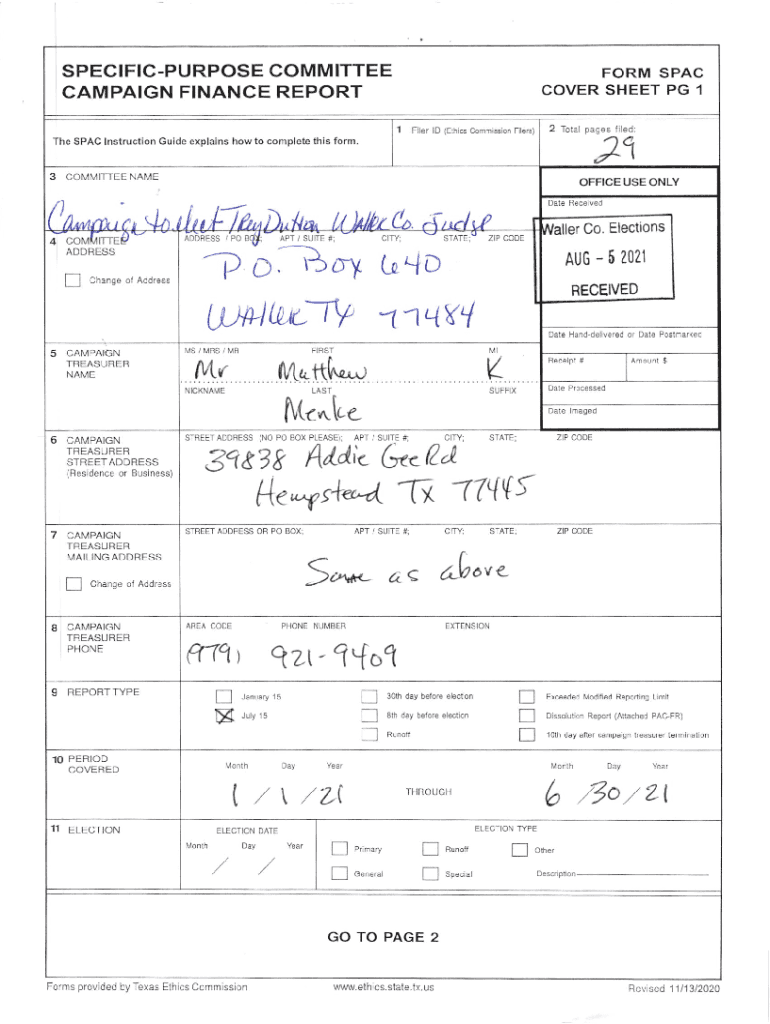 SPECIFIC-PURPOSE COMMITTEE
CAMPAIGN FINANCE REPORT
FORM SPAC
COVER SHEET PG 1
The SPAC Instruction Guide explains how to complete this form.
1 Filer ID (Ethics Commission Filers)
2 Total pages filed:
29
3 COMMITTEE NAME
Campaign to elect Trey Dutton Waller Co. Judge
OFFICE USE ONLY
Date Received
Waller Co. Elections
AUG - 5 2021
RECEIVED
4 COMMITTEE
ADDRESS
Change of Address
ADDRESS / PO BOX; APT / SUITE #; CITY; STATE; ZIP CODE
P.O. Box 640
Waller TX 77484
Date Hand-delivered or Date Postmarked
5 CAMPAIGN
TREASURER
NAME
MS / MRS / MR FIRST MI
Mr Matthew K
NICKNAME LAST SUFFIX
Menke
Receipt # Amount $
Date Processed
Date Imaged
6 CAMPAIGN
TREASURER
STREET ADDRESS
(Residence or Business)
STREET ADDRESS (NO PO BOX PLEASE); APT / SUITE #; CITY; STATE; ZIP CODE
39838 Addie Gee Rd
Hempstead Tx 77445
7 CAMPAIGN
TREASURER
MAILING ADDRESS
Change of Address
STREET ADDRESS OR PO BOX; APT / SUITE #; CITY; STATE; ZIP CODE
Same as above
8 CAMPAIGN
TREASURER
PHONE
AREA CODE PHONE NUMBER EXTENSION
(979) 921-9409
9 REPORT TYPE
January 15 30th day before election Exceeded Modified Reporting Limit
July 15 8th day before election Dissolution Report (Attached PAC-FR)
Runoff 10th day after campaign treasurer termination
10 PERIOD
COVERED
Month Day Year Month Day Year
1 / 1 / 21 THROUGH 6 / 30 / 21
11 ELECTION
ELECTION DATE ELECTION TYPE
Month Day Year
/ /
Primary Runoff Other
General Special Description
GO TO PAGE 2
Forms provided by Texas Ethics Commission www.ethics.state.tx.us Revised 11/13/2020